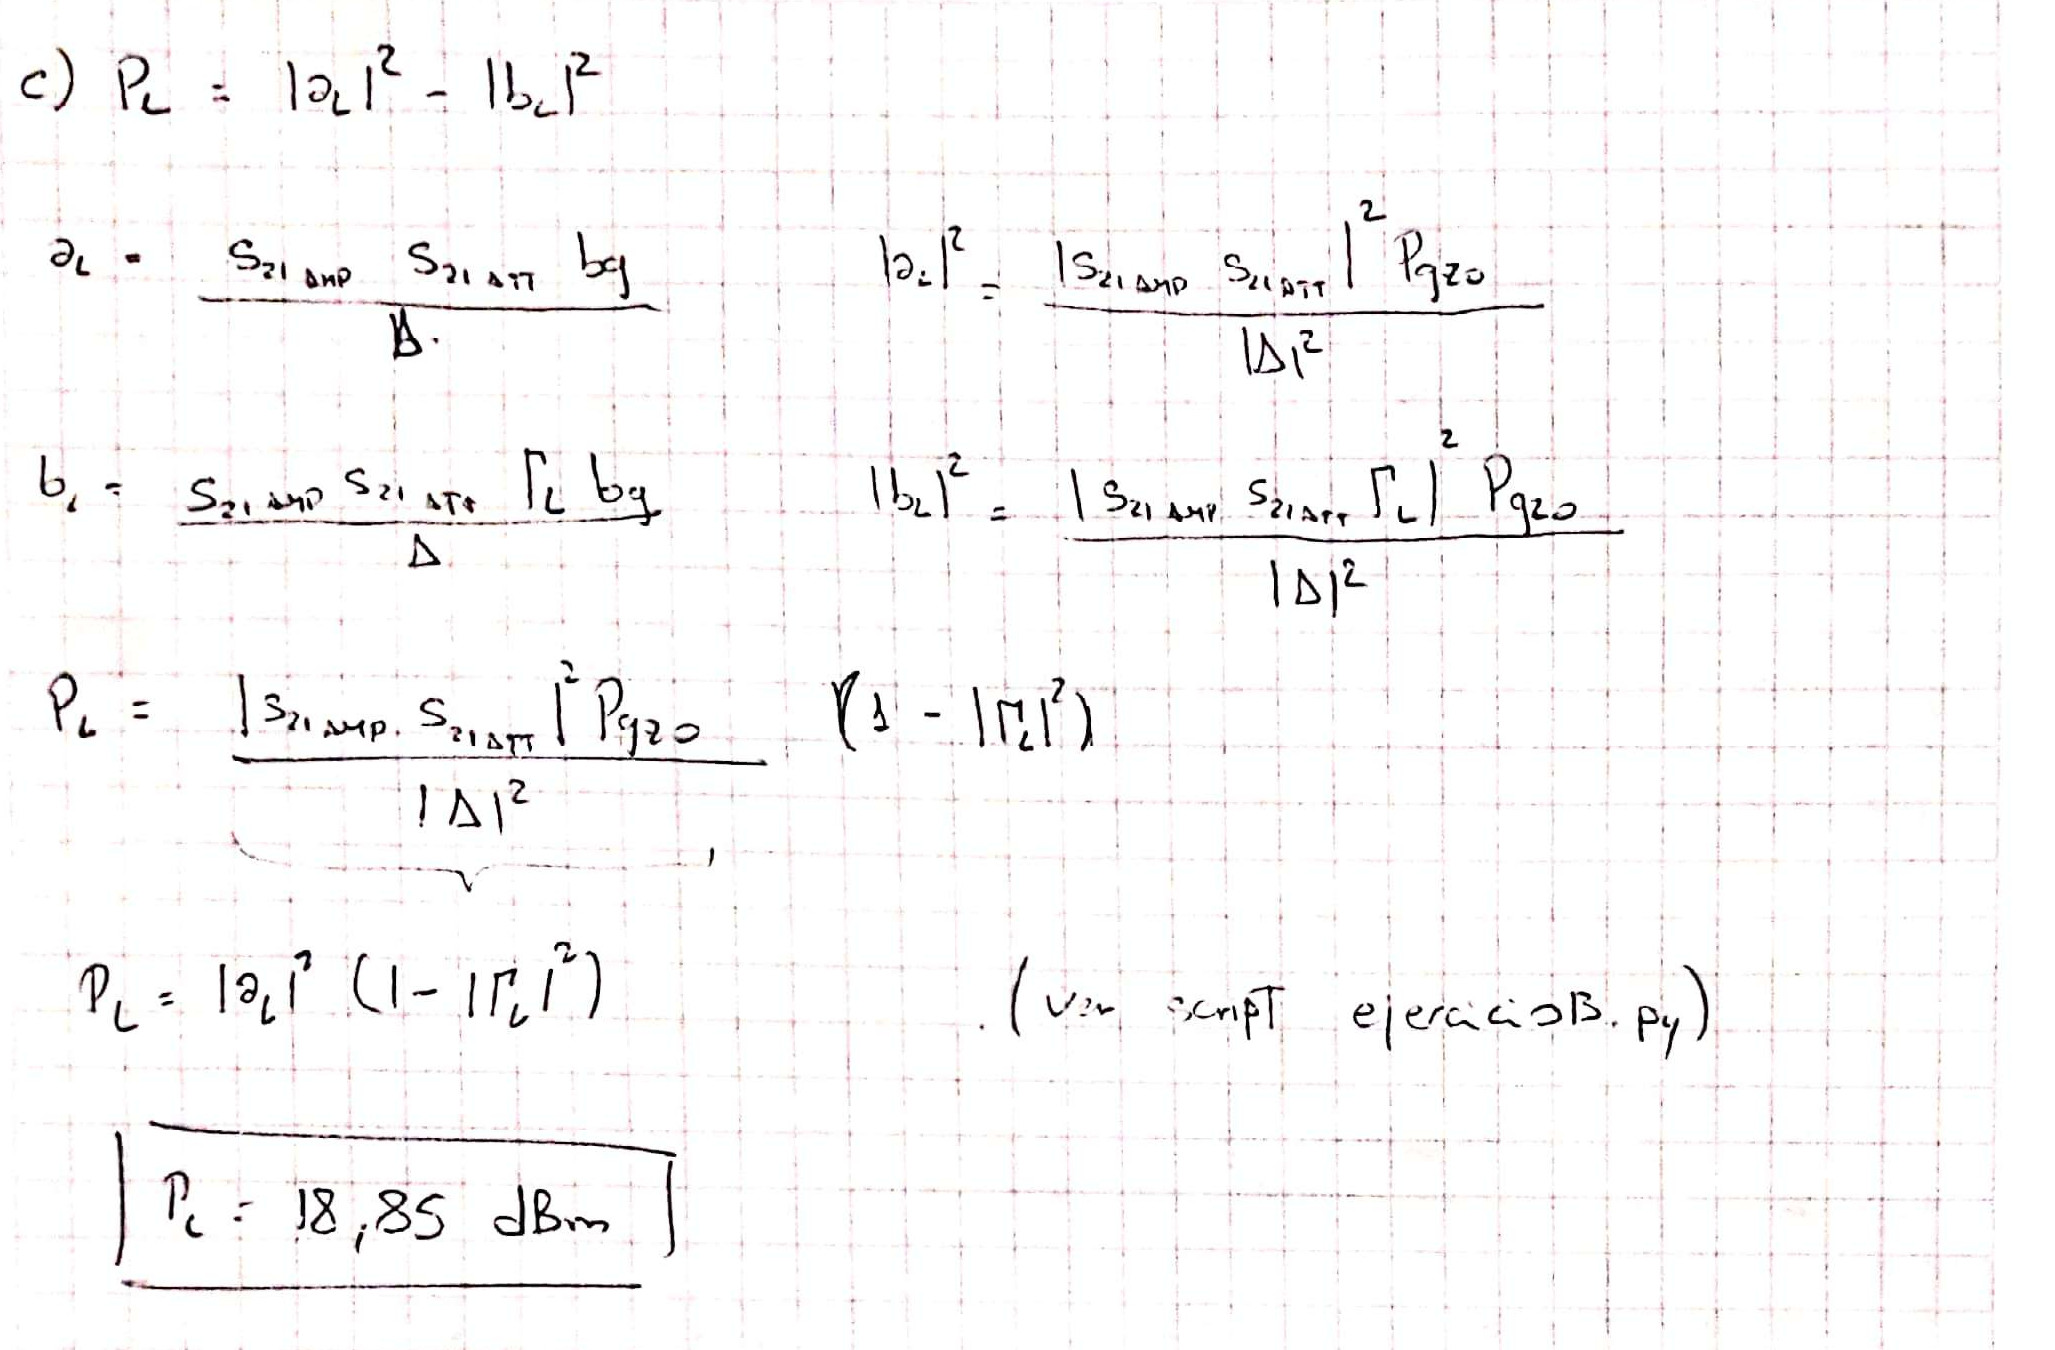 c) P_L = |a_L|² - |b_L|²
a_L = S_21 AMP S_21 ATT b_g / Δ. |a_L|² = |S_21 AMP S_21 ATT|² P_gz0 / |Δ|²
b_L = S_21 AMP S_21 ATT Γ_L b_g / Δ |b_L|² = |S_21 AMP S_21 ATT Γ_L|² P_gz0 / |Δ|²
P_L = |S_21 AMP. S_21 ATT|² P_gz0 / |Δ|² (1 - |Γ_L|²)
P_L = |a_L|² (1 - |Γ_L|²) (ver script ejercicioB.py)
P_L = 18,85 dBm